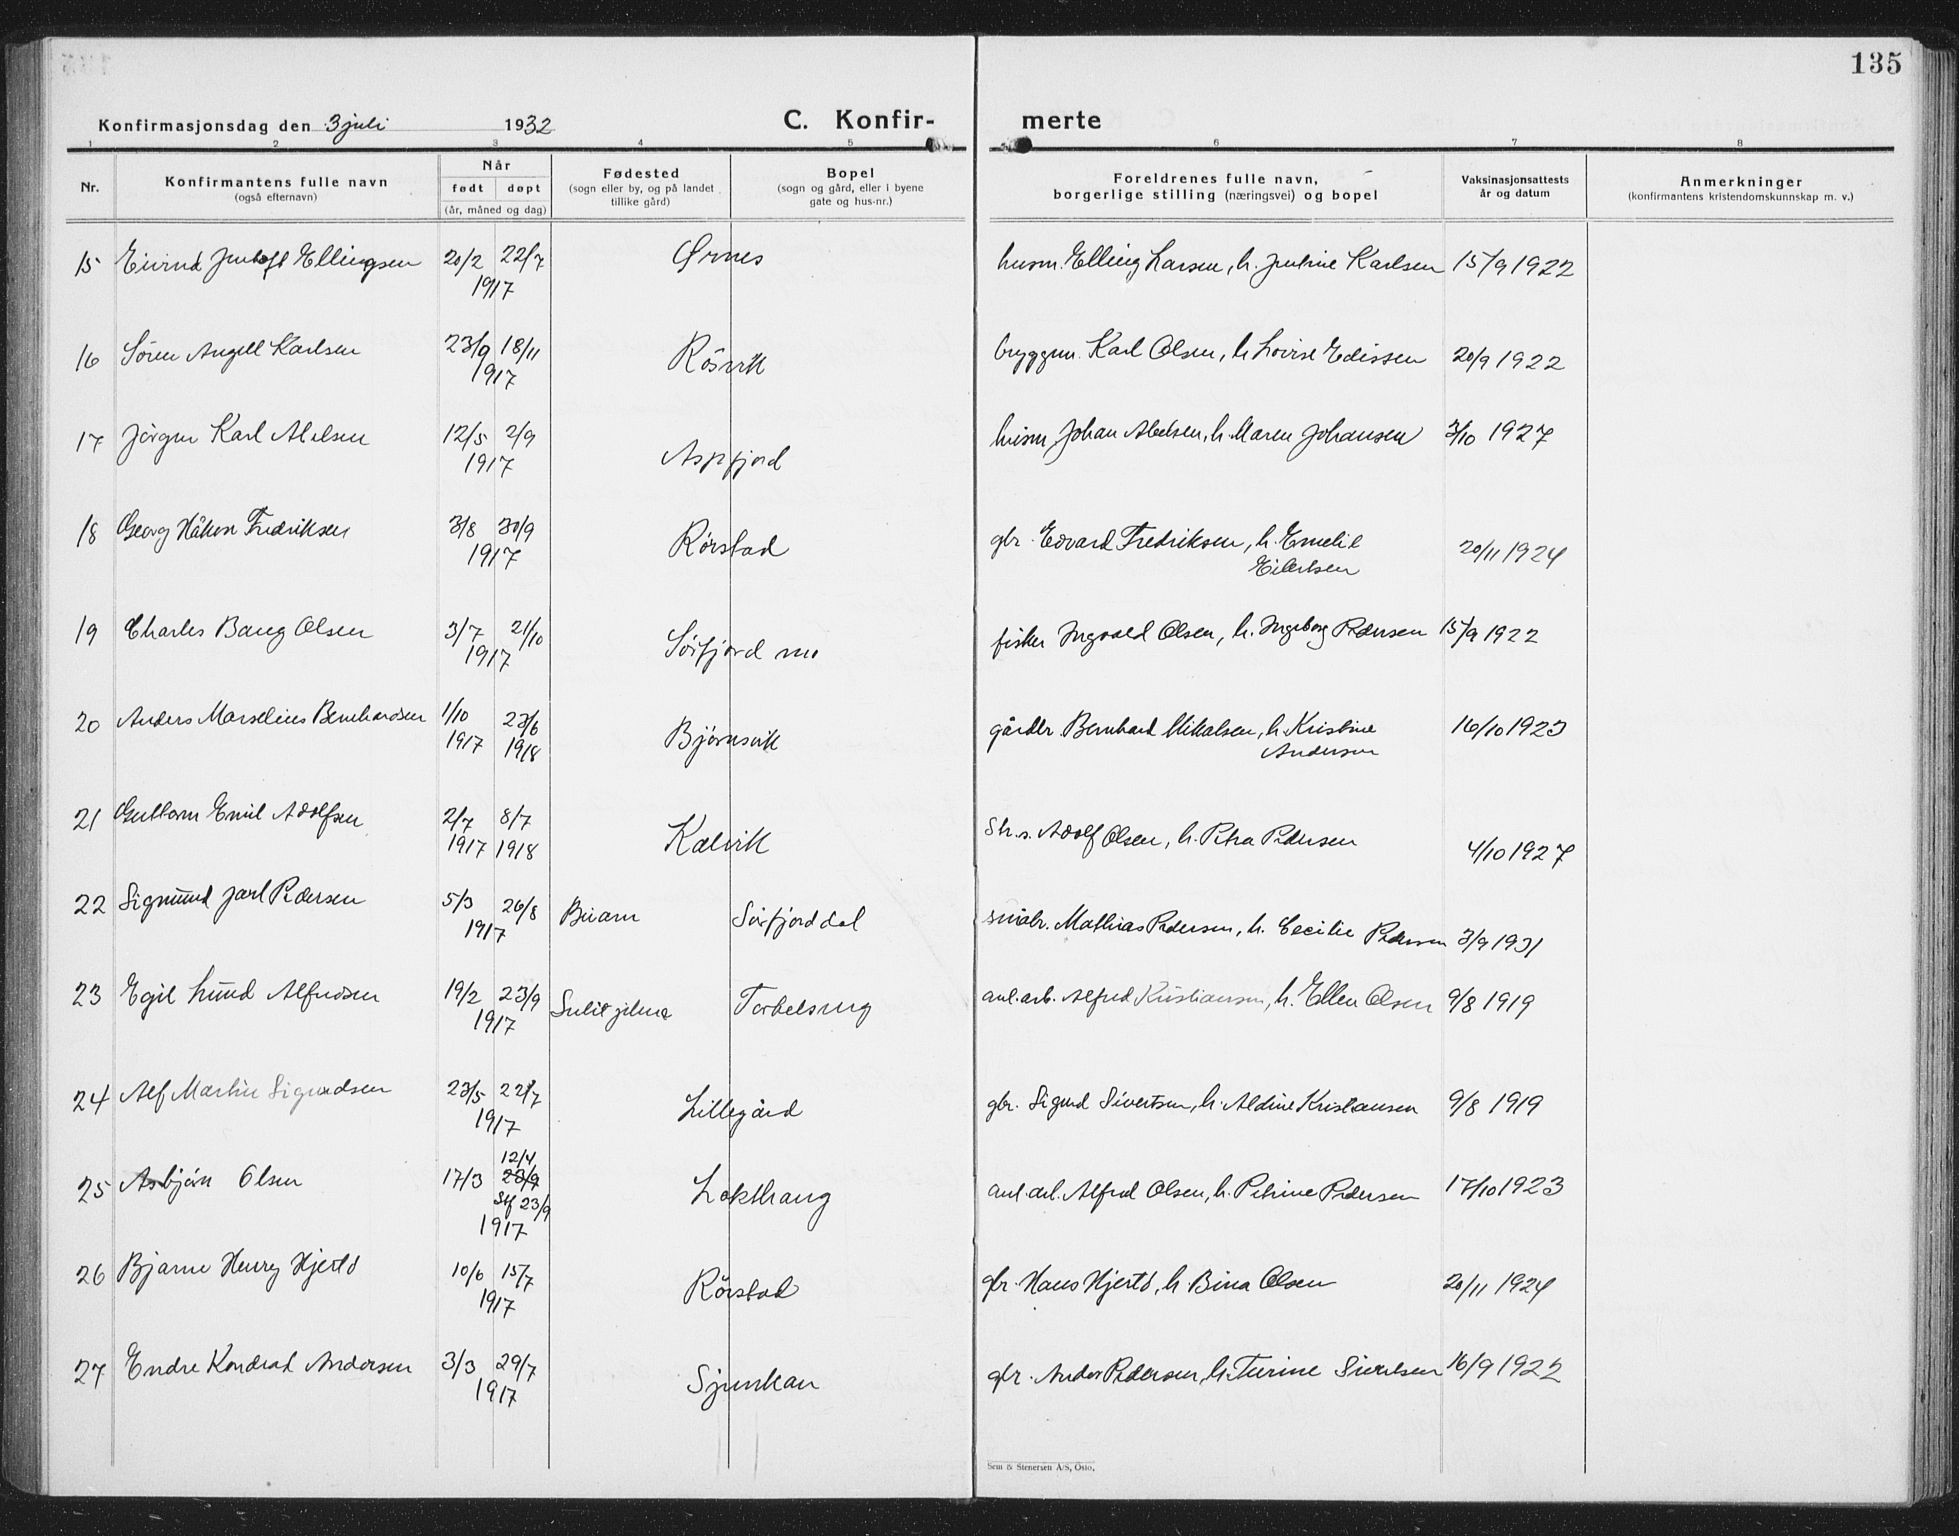 135
Konfirmasjonsdag den 3 juli 1932 C. Konfir- merte
1 2 3 4 5 6 7 8
Nr. Konfirmantens fulle navn (også efternavn) Når født døpt (år, måned og dag) Fødested (sogn eller by, og på landet tillike gård) Bopel (sogn og gård, eller i byene gate og hus-nr.) Foreldrenes fulle navn, borgerlige stilling (næringsvei) og bopel Vaksinasjonsattests år og datum Anmerkninger (konfirmantens kristendomskunnskap m. v.)
15 Eivind Jentoft Ellingsen 20/2 22/7 1917 Ørnes husm. Elling Larsen, h. Jentine Karlsen 15/9 1922
16 Sören Angell Karlsen 23/9 18/11 1917 Rösvik bryggem. Karl Olsen, h. Lovise Edissen 20/9 1922
17 Jörgen Karl Abelsen 12/5 2/9 1917 Aspfjord husm Johan Abelsen, h. Maren Johansen 3/10 1927
18 Georg Håkon Fredriksen 3/8 30/9 1917 Rörstad gbr. Edvard Fredriksen, h. Emelie
Eilertsen 20/11 1924
19 Charles Bang Olsen 3/7 21/10 1917 Sörfjord fisker Ingvald Olsen, h. Ingeborg Pedersen 15/9 1922
20 Anders Marselius Bernhardsen 1/10 1917 23/6 1918 Björnsvik gårdbr. Bernhard Mikalsen, h. Kristine
Andersen 16/10 1923
21 Guttorm Emil Adolfsen 2/7 1917 8/7 1918 Kalvik Adolf Olsen, h. Petra Pedersen 4/10 1927
22 Sigmund Jarl Pedersen 5/3 26/8 1917 Beiarn Sörfjorddal småbr. Mathias Pedersen, h. Cecilie Pedersen 3/9 1931
23 Egil Lund Alfredsen 19/2 23/9 1917 Sulitjelma anl.arb. Alfred Kristiansen, h. Ellen Olsen 9/8 1919
24 Alf Martin Sigurdsen 23/5 22/7 1917 Lillegård gbr. Sigurd Sivertsen, h. Aldine Kristiansen 9/8 1919
25 Asbjörn Olsen 17/3 12/4 23/9 Stf 23/9 1917 Lakthaug anl.arb. Alfred Olsen, h. Petrine Pedersen 17/10 1923
26 Bjarne Henry Hjertö 10/6 15/7 1917 Rörstad gbr. Hans Hjertö, h Bina Olsen 20/11 1924
27 Endre Kondrad Andersen 3/3 29/7 1917 Sjunkan gbr. Anders Pedersen, h. Turine Sivertsen 16/9 1922
Sem & Stenersen A/S, Oslo.